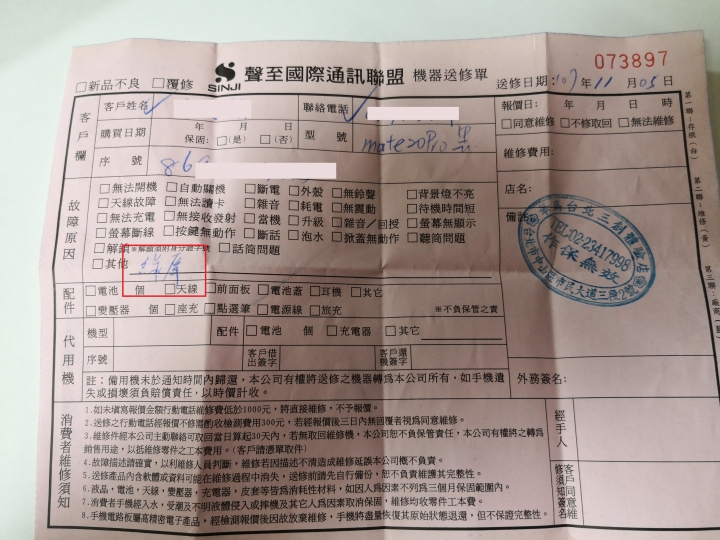 073897
□新品不良 □覆修 SINJI 聲至國際通訊聯盟 機器送修單 送修日期:107年11月05
客戶欄
客戶姓名
聯絡電話
購買日期 年 月 日
保固:□(是) □(否)
型號 mate20Pro 黑
序號 86
報價日: 年 月 日 時
□同意維修 □不修取回 □無法維修
維修費用:
店名:
備註:
故障原因
□無法開機 □自動關機 □斷電 □外殼 □無鈴聲 □背景燈不亮
□天線故障 □無法讀卡 □雜音 □耗電 □無震動 □待機時間短
□無法充電 □無接收發射 □當機 □升級 □雜音/回授 □螢幕無顯示
□螢幕斷線 □按鍵無動作 □斷話 □泡水 □掀蓋無動作 □聽筒問題
□解鎖 ※解鎖須附身分證字號 □話筒問題
□其他 綠屏
TEL:02-23417998
配件
□電池 個 □天線 □前面板 □電池蓋 □耳機 □其它
□變壓器 個 □座充 □點選筆 □電源線 □旅充 ※不負保管之責
代用機
機型 配件 □電池 個 □充電器 □其它
序號 客戶借出簽字 客戶還機簽字
註:備用機未於通知時間內歸還,本公司有權將送修之機器轉為本公司所有,如手機遺
失或損壞須負賠償責任,以時價計收。
外務簽名:
消費者維修須知
1.如未填寫報價金額行動電話維修費低於1000元,將直接維修,不予報價。
2.送修之行動電話經報價不修需酌收檢測費用300元,若經報價後三日內無回覆者視為同意維修。
3.維修件經本公司主動聯絡可取回當日算起30天內,若無取回維修機,本公司恕不負保管責任,本公司有權將之轉為
銷售用途,以抵維修零件之工本費用。(客戶請憑單取件)
4.故障描述請確實,以利維修人員判斷,維修若因描述不清造成維修延誤本公司概不負責。
5.送修產品內含軟體或資料可能在維修過程中消失,送修前請先自行備份,恕不負責維護其完整性。
6.液晶,電池,天線,變壓器,充電器,皮套等皆為消耗性材料,如因人為因素不列為三個月保固範圍內。
7.消費者手機經入水,受潮及不明液體侵入或摔機及其它人為因素取消保固,維修均收零件工本費。
8.手機電路板屬高精密電子產品,經檢測報價後因故放棄維修,手機將盡量恢復其原始狀態退還,但不保證完整性。
經手人
客戶同意維修須知簽名
第一聯:存根(白)
第二聯:維修(黃)